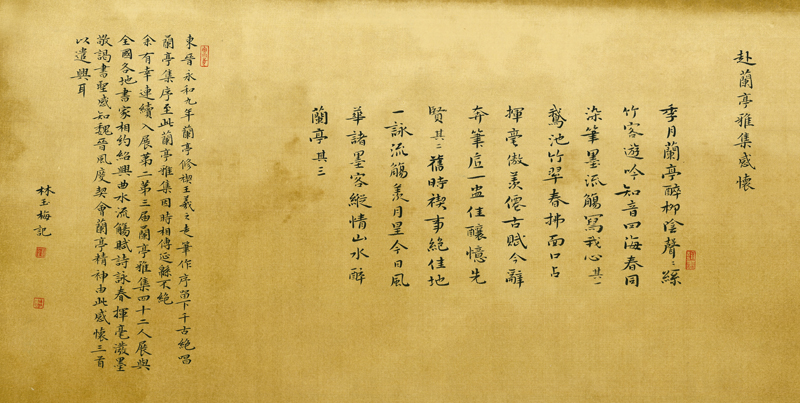 赴蘭亭雅集感懷
季月蘭亭醉柳陰聲聲絲
竹客遊吟知音四海春同
染筆墨流觴寫我心其一
鵝池竹翠春拂面口占
揮毫傲羨僊古賦今辭
弃筆后一盅佳釀憶先
賢其二舊時禊事絕佳地
一詠流觴羨月星今日風
華諸墨客縱情山水醉
蘭亭其三
東晉永和九年蘭亭修禊王羲之走筆作序留下千古絕唱
蘭亭集序至此蘭亭雅集因時相傳延緜不絕
余有幸連續入展第二第三屆蘭亭雅集四十二人展與
全國各地書家相約紹興曲水流觴賦詩詠春揮毫潑墨
敬謁書聖感知魏晉風度契會蘭亭精神由此感懷三首
以遣興耳
林玉梅記